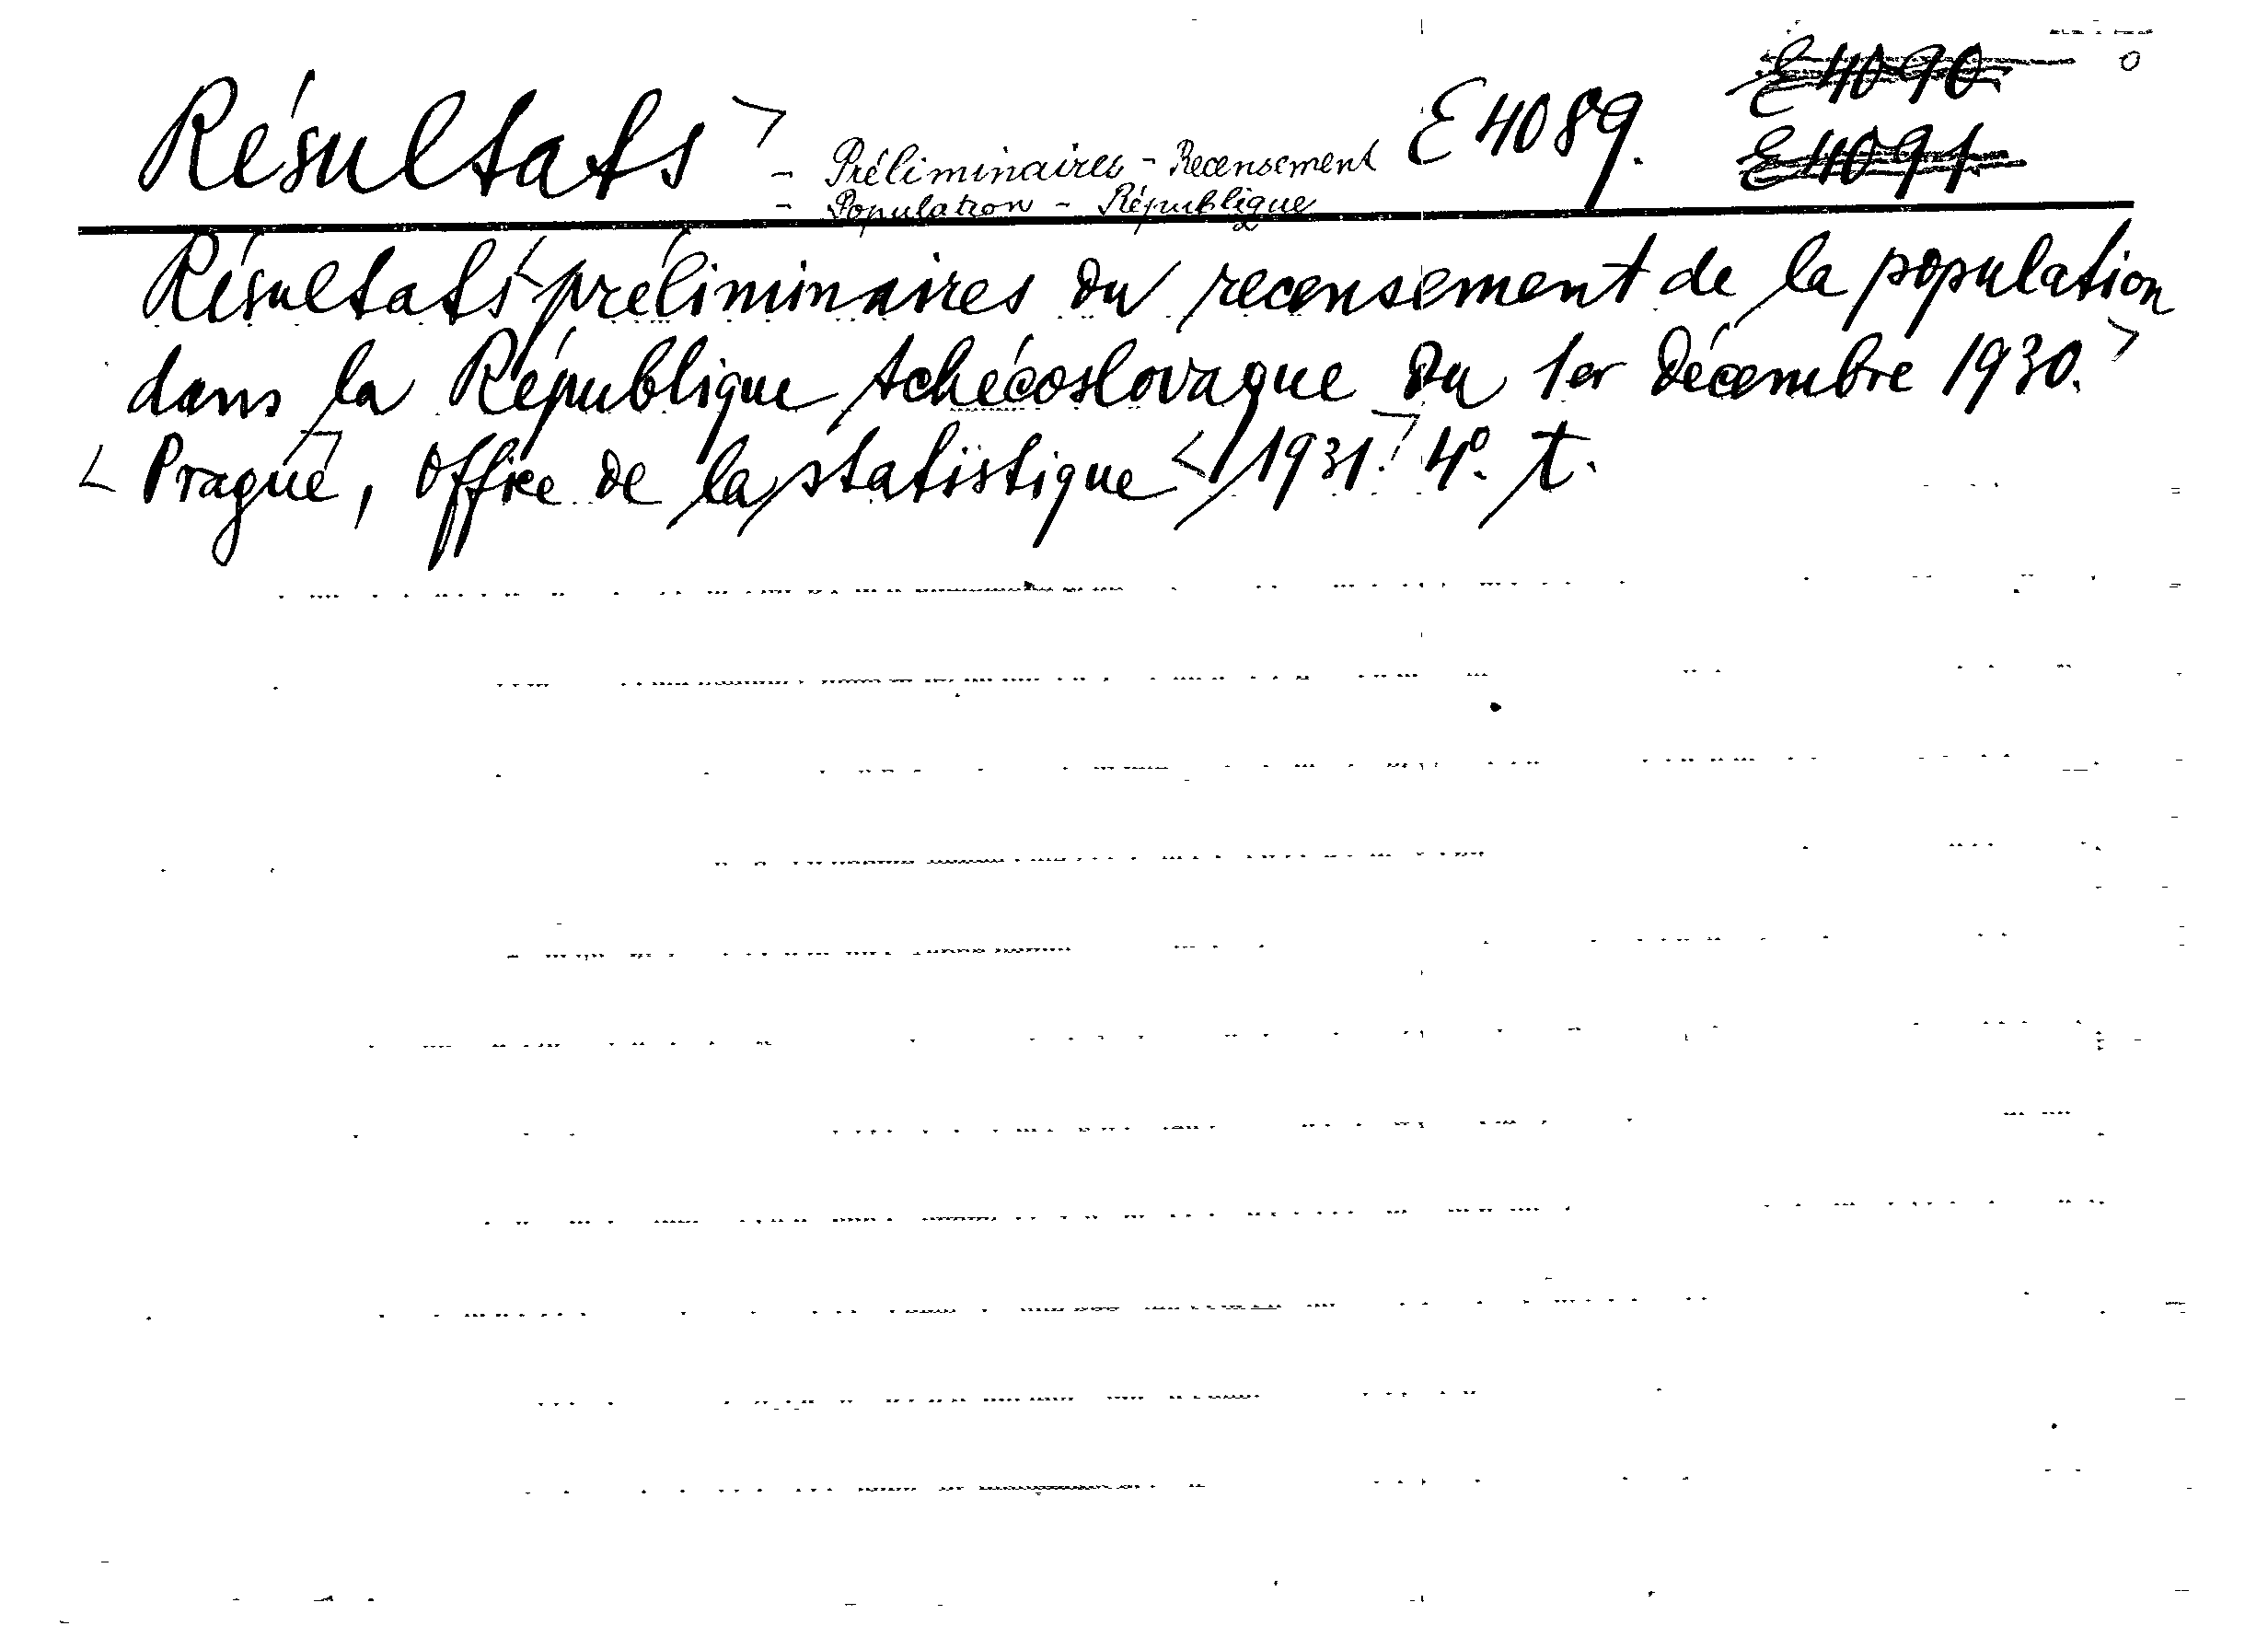 Résultats - Préliminaires - Recensement E 4089. E 4090
- Population - République E 4091
Résultats préliminaires du recensement de la population
dans la République tchécoslovaque du 1er Décembre 1930.
Prague, Office de la statistique 1931. 4°. t.